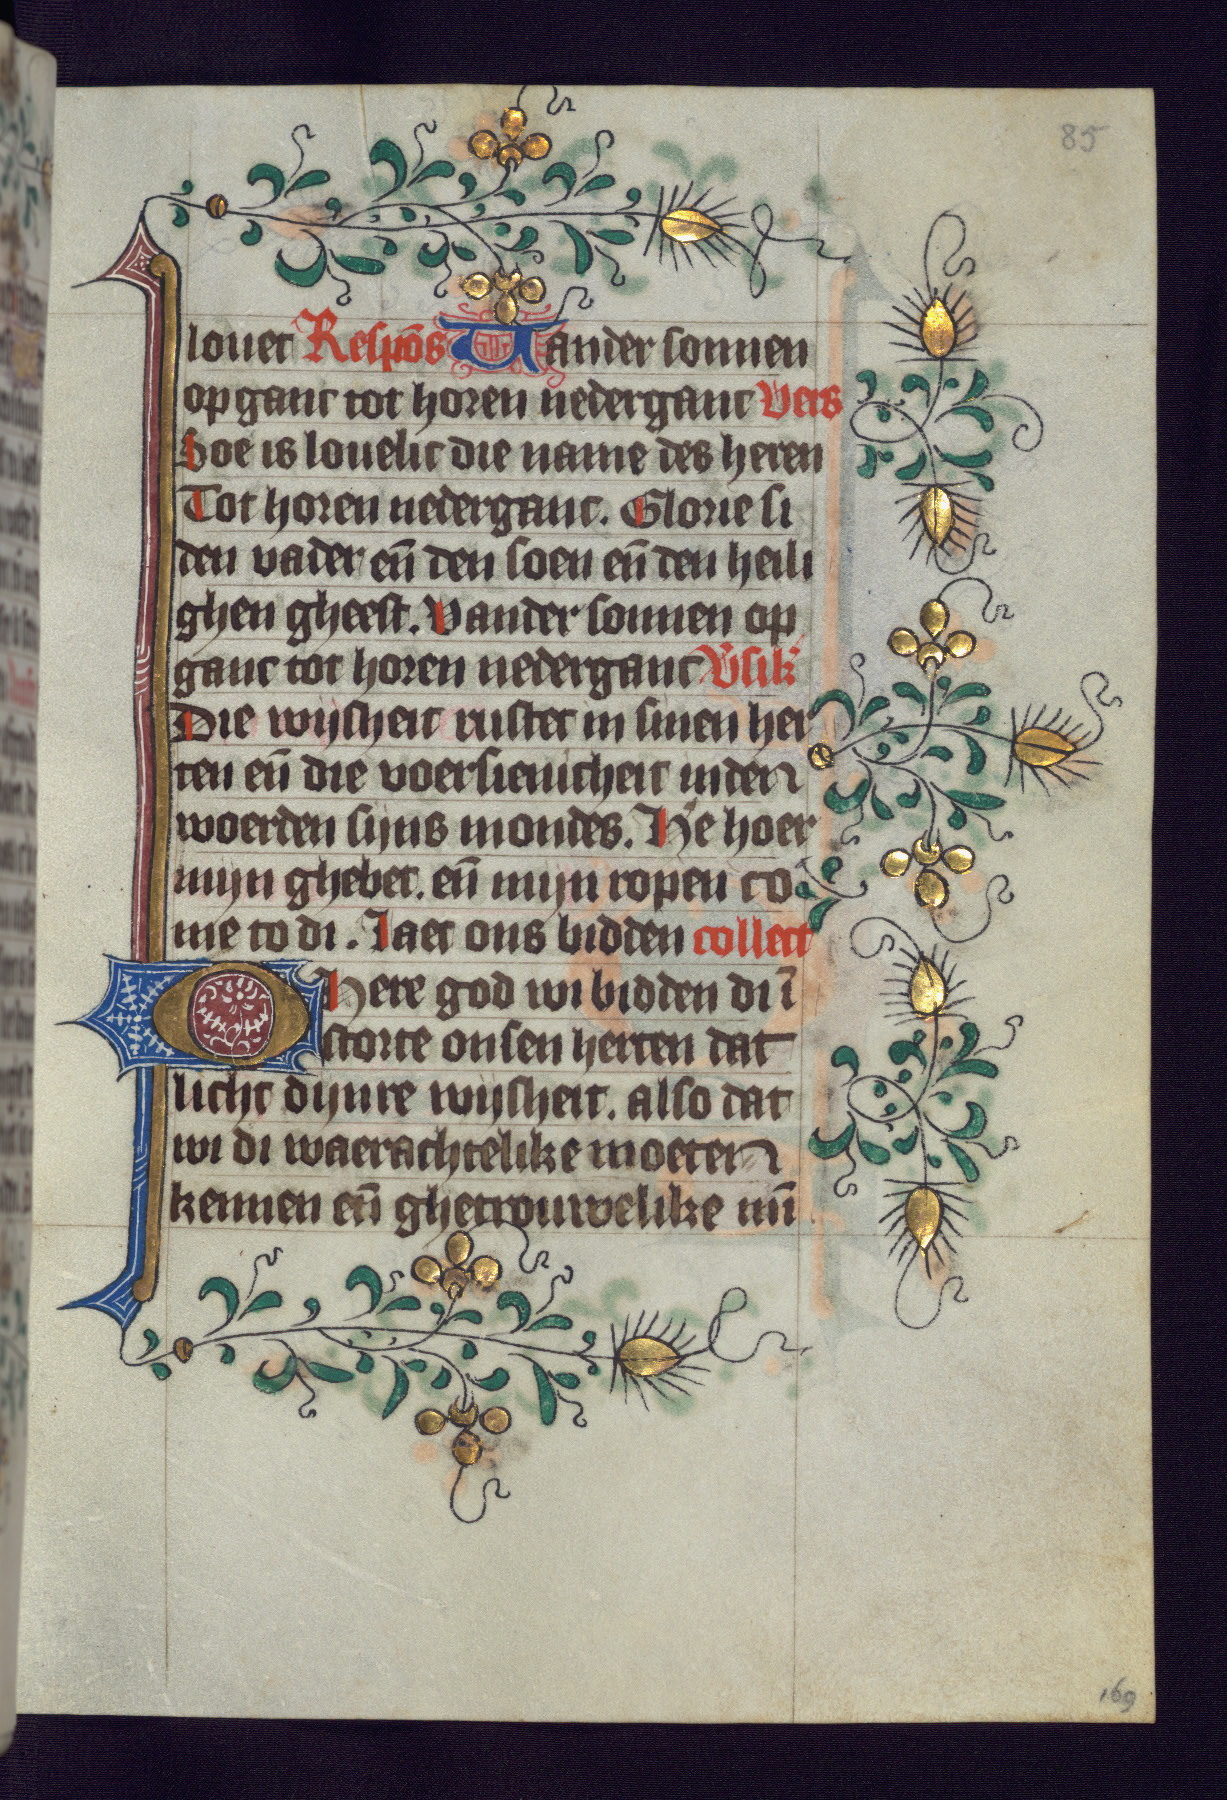 85
louet Respōs Uander sonnen
opganc tot horen nederganc Vers
Hoe is louelic die name des heren
Tot horen nederganc. Glorie si
den vader en̄ den soen en̄ den heili
ghen gheest. Vander sonnen op
ganc tot horen nederganc Vsik̄
Die wijsheit rustet in sinen her
ten en̄ die voersienicheit inden
woerden sijns mondes. He hoer
mijn ghebet. en̄ mijn ropen co
me to di. Laet ons bidden collect
O Here god wi bidden di ī
storte onsen herten dat
licht dijnre wijsheit. also dat
wi di waerachtelike moeten
kennen en̄ ghetrouwelike mī
169